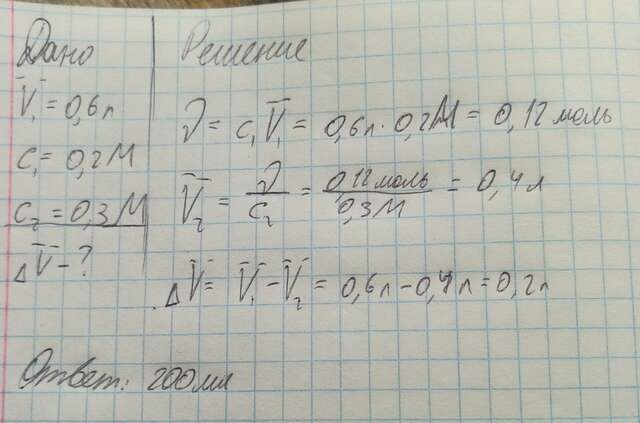 Дано
V₁ = 0,6л
c₁ = 0,2М
c₂ = 0,3М
ΔV - ?
Решение
ν = c₁V₁ = 0,6л · 0,2М = 0,12 моль
V₂ = ν/c₂ = 0,12 моль/0,3М = 0,4л
ΔV = V₁ - V₂ = 0,6л - 0,4л = 0,2л
Ответ: 200мл